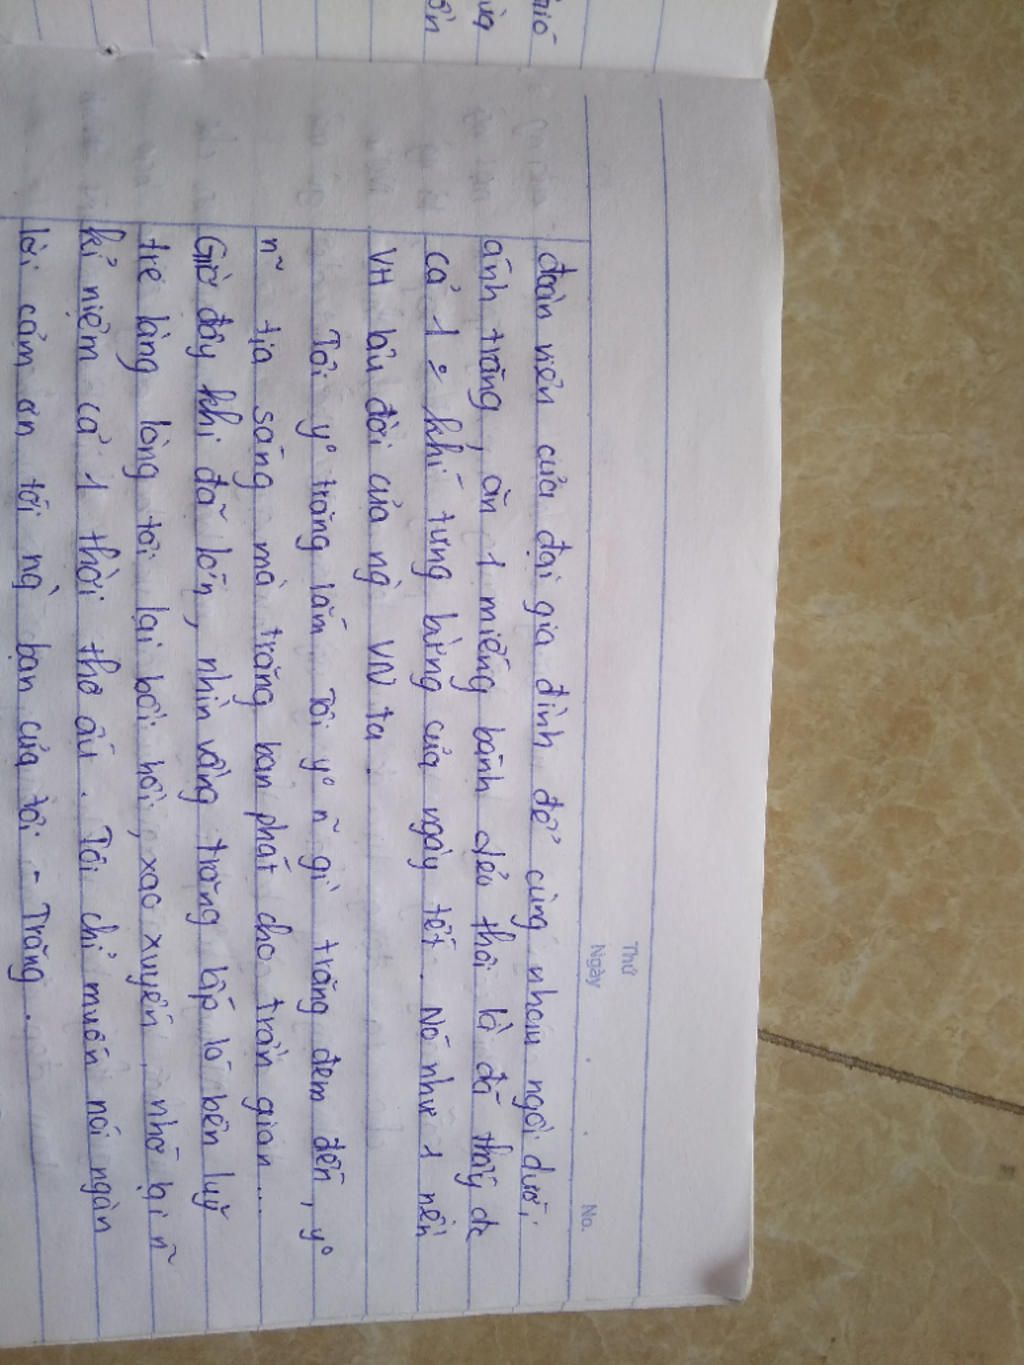 Thứ
Ngày
No.
đoàn viên của đại gia đình để cùng nhau ngồi dưới
ánh trăng, ăn 1 miếng bánh dẻo thôi là đã thấy đc
cả 1 khí tưng bừng của ngày tết. Nó như 1 nền
VH lâu đời của ng` VN ta.
Tôi y° trăng lắm. Tôi y° n~ gì trăng đem đến, y°
n~ tia sáng mà trăng ban phát cho trần gian...
Giờ đây khi đã lớn, nhìn vầng trăng lấp ló bên luỹ
tre làng lòng tôi lại bồi hồi, xao xuyến, nhớ lại n~
kỉ niệm cả 1 thời thơ ấu. Tôi chỉ muốn nói ngàn
lời cảm ơn tới ng` bạn của tôi - Trăng.